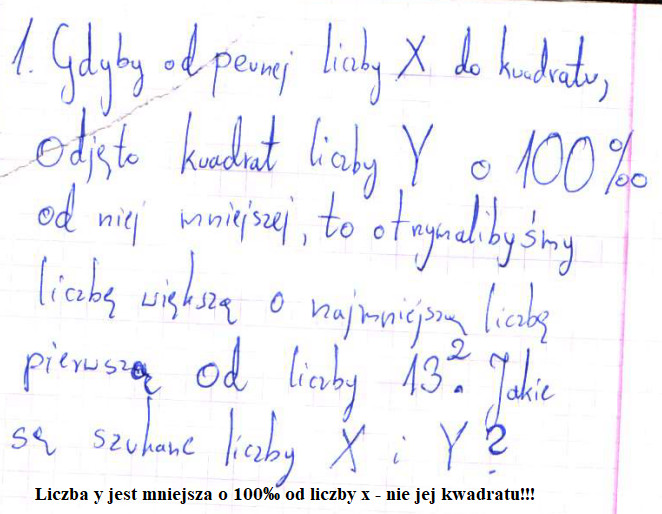 1. Gdyby od pewnej liczby X do kwadratu,
odjęto kwadrat liczby Y o 100‰
od niej mniejszej, to otrzymalibyśmy
liczbę większą o najmniejszą liczbę
pierwszą od liczby 13². Jakie
są szukane liczby X i Y?
Liczba y jest mniejsza o 100‰ od liczby x - nie jej kwadratu!!!